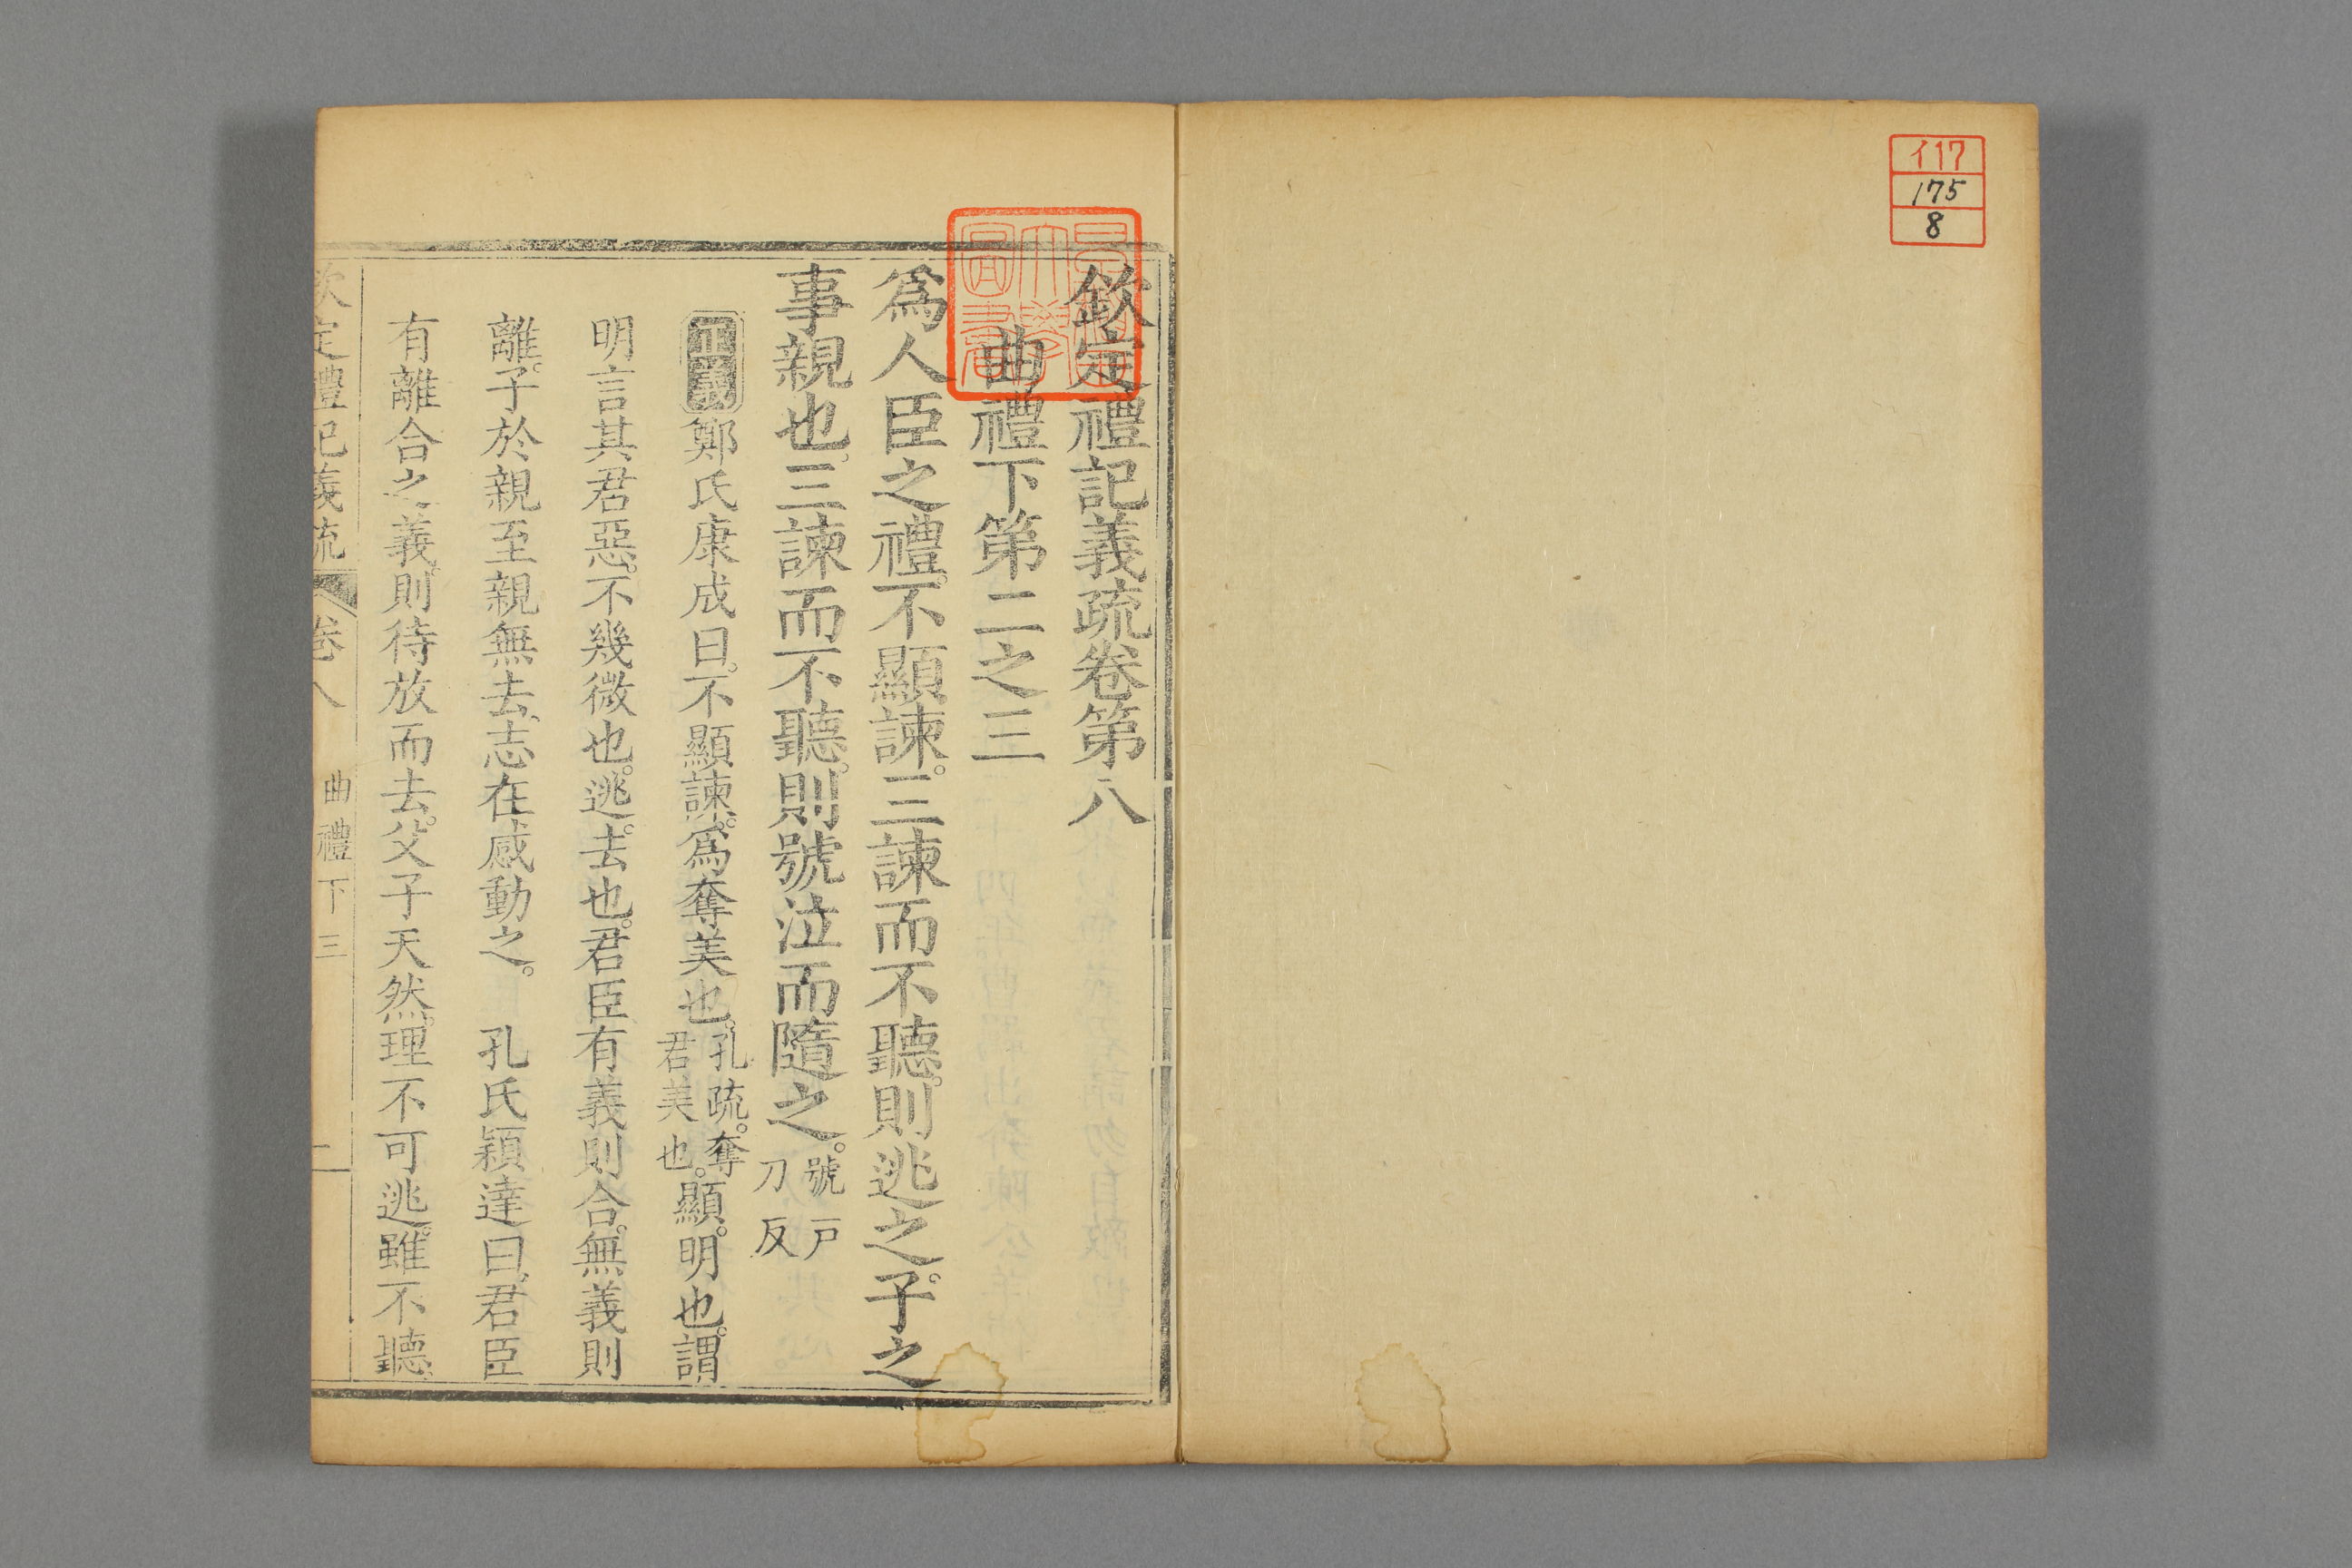 イ17
175
8
欽定禮記義疏卷第八
曲禮下第二之三
爲人臣之禮。不顯諫。三諫而不聽。則逃之。子之
事親也。三諫而不聽。則號泣而隨之。號戶刀反
正義鄭氏康成曰。不顯諫。爲奪美也。孔疏。奪君美也。顯。明也。謂
明言其君惡。不幾微也。逃。去也。君臣有義則合。無義則
離。子於親至親無去。志在感動之。 孔氏穎達曰。君臣
有離合之義。則待放而去。父子天然。理不可逃。雖不聽
欽定禮記義疏 卷八 曲禮下三 一